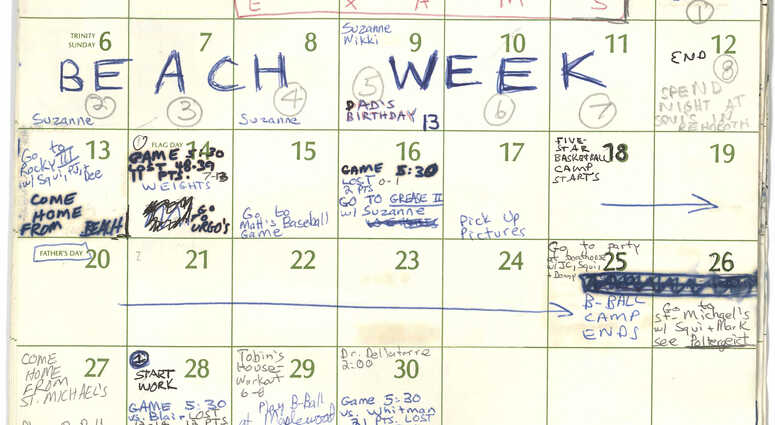 E X A M S
1
TRINITY SUNDAY 6
7
8
Suzanne
Wikki
9
10
11
12
BEACH WEEK
END
2
3
4
5
6
7
8
Suzanne
Suzanne
DAD'S
BIRTHDAY 13
SPEND
NIGHT AT
SQUI'S IN
REHOBOTH
13
Go to
Rocky III
w/ Squi, PJ, +
Dee
COME
HOME
FROM BEACH
FLAG DAY 14
GAME 5:30
LOST 48-39
11 PTS. 7-13
WEIGHTS
GO
TO
URGO'S
15
Go to
Matt's Baseball
Game
16
GAME 5:30
LOST 0-1
2 PTS
GO TO GREASE II
w/ Suzanne
17
Pick Up
Pictures
18
FIVE-
STAR
BASKETBALL
CAMP
STARTS
19
FATHER'S DAY
20
21
22
23
24
25
Go to party
at boathouse
w/ JC, Squi,
+ Danny
B-BALL
CAMP
ENDS
26
Go to
St. Michael's
w/ Squi + Mark
see Poltergeist
27
COME
HOME
FROM
ST. MICHAEL'S
28
START
WORK
GAME 5:30
vs. Blair LOST
29
Tobin's
House-
Workout
6-8
Play B-Ball
at Maplewood
30
Dr. Dellatorre
2:00
GAME 5:30
vs. Whitman
31 PTS. LOST